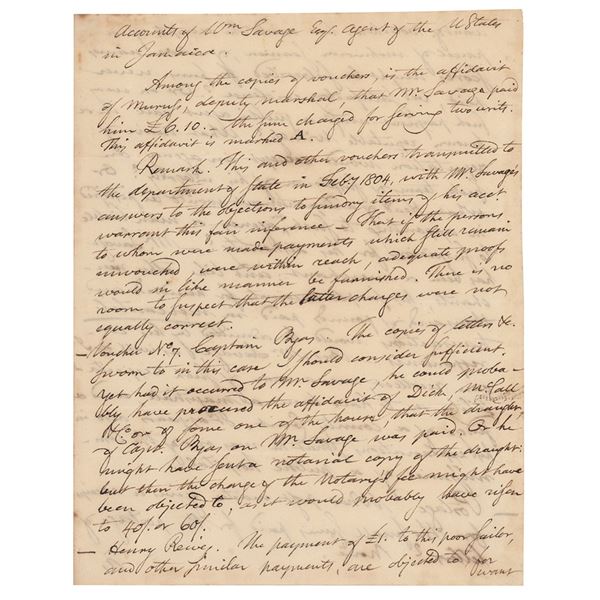 Accounts of Wm Savage Esq. Agent of the U States
in Jamaica.
Among the copies of vouchers, is the affidavit
of deputy marshal, that Mr. Savage paid
him £6.10 – the sum charged for serving two writs.
This affidavit is marked A.
Remark. This and other vouchers transmitted to
the department of State in Feby 1804, with Mr Savage's
answers to the objections to sundry items of his acct
warrant this fair inference – That if the persons
to whom were made payments which still remain
unvouched, were within reach, adequate proofs
would in like manner be furnished. There is no
room to suspect that the latter charges were not
equally correct.
– Voucher No 7. Captain Byas. The copies of letters &c.
sworn to in this case I should consider sufficient.
yet had it occurred to Mr Savage, he could proba-
bly have procured the affidavit of Dick, McCall
&Co or of some one of the house, that the draught
of Capt. Byas on Mr Savage was paid. Or he
might have sent a notarial copy of the draught:
but then the charge of the Notary's fee might have
been objected to, as it would probably have risen
to 40/. or 60/.
– Henry . The payment of £1. to this poor sailor,
and other similar payments, are objected to for
want